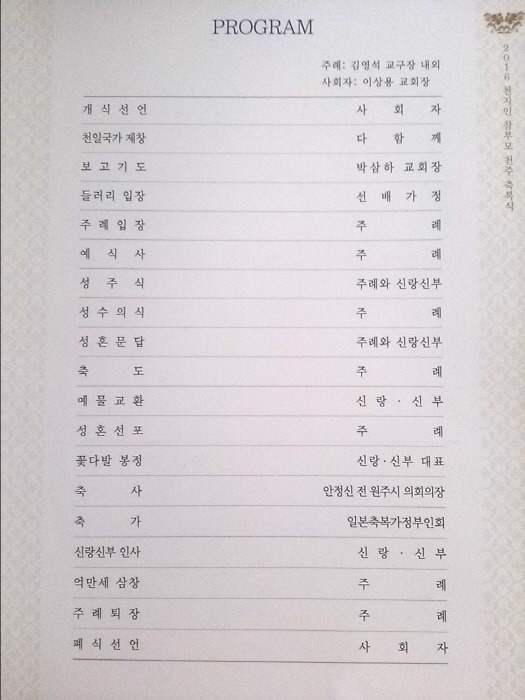 PROGRAM
주례: 김영석 교구장 내외
사회자: 이상용 교회장
개 식 선 언 사 회 자
천일국가 제창 다 함 께
보 고 기 도 박삼하 교회장
들러리 입장 선 배 가 정
주 례 입 장 주 례
예 식 사 주 례
성 주 식 주례와 신랑신부
성 수 의 식 주 례
성 혼 문 답 주례와 신랑신부
축 도 주 례
예 물 교 환 신 랑 · 신 부
성 혼 선 포 주 례
꽃다발 봉정 신랑·신부 대표
축 사 안정신 전 원주시 의회의장
축 가 일본축복가정부인회
신랑신부 인사 신 랑 · 신 부
억만세 삼창 주 례
주 례 퇴 장 주 례
폐 식 선 언 사 회 자
2016 천지인 참부모 천주 축복식